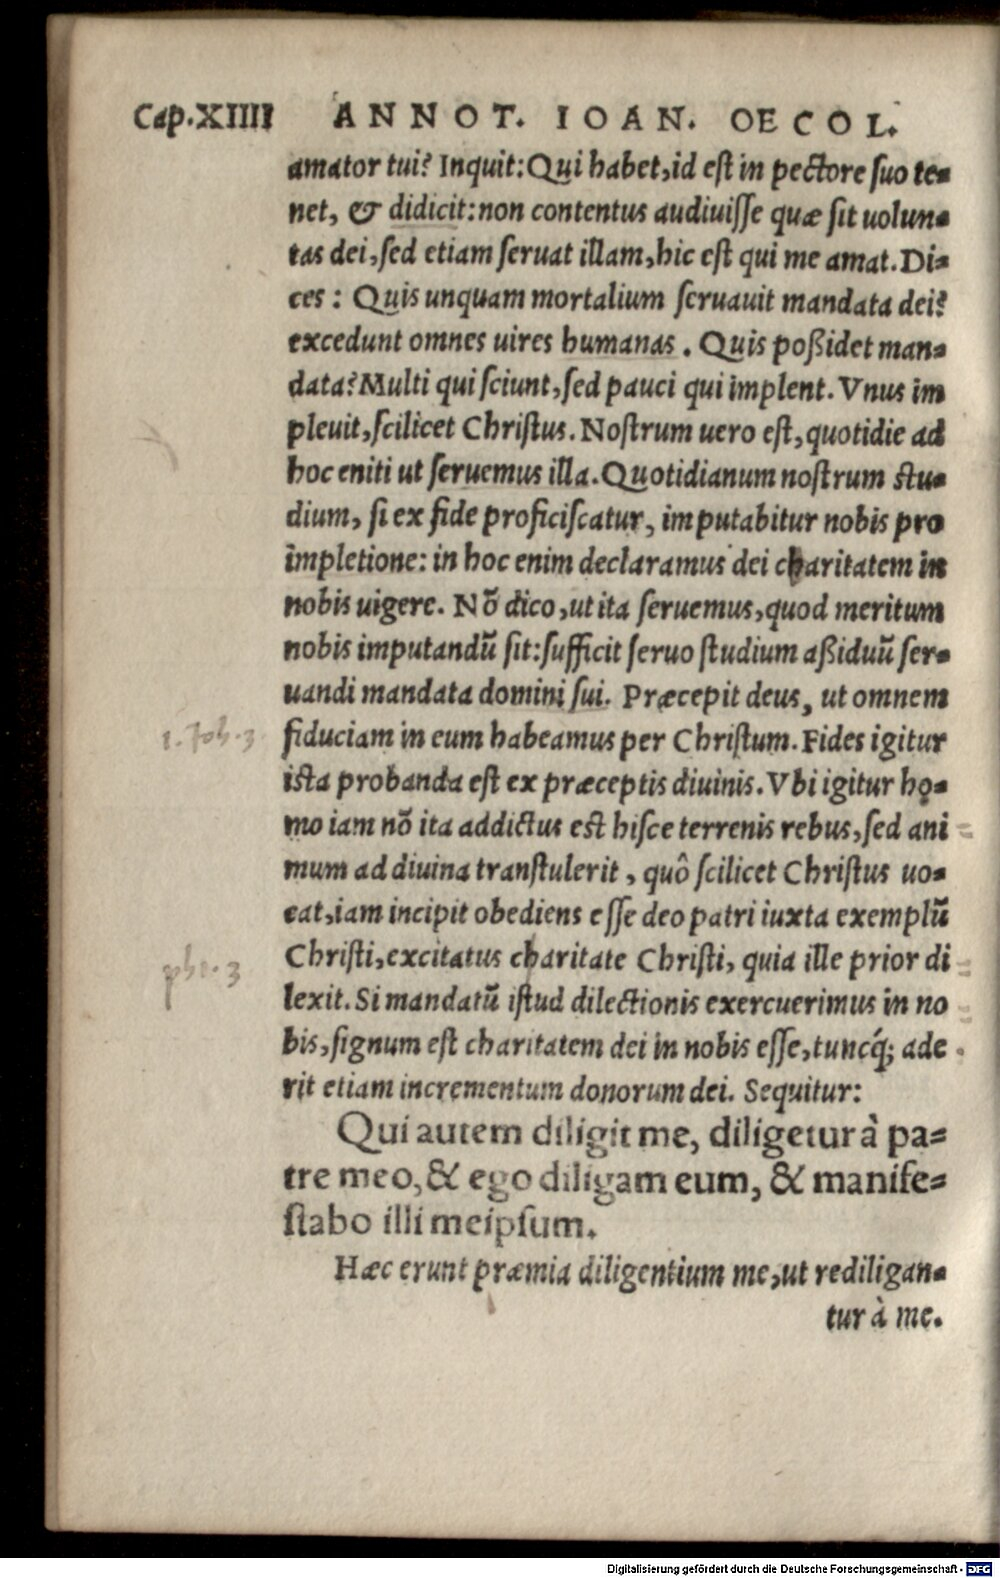 Cap.XIIII ANNOT. IOAN. OECOL.
amator tui? Inquit: Qui habet, id est in pectore suo te-
net, & didicit: non contentus audiuisse quæ sit uolun-
tas dei, sed etiam seruat illam, hic est qui me amat. Di-
ces: Quis unquam mortalium seruauit mandata dei?
excedunt omnes uires humanas. Quis poßidet man-
data? Multi qui sciunt, sed pauci qui implent. Vnus im
pleuit, scilicet Christus. Nostrum uero est, quotidie ad
hoc eniti ut seruemus illa. Quotidianum nostrum stu-
dium, si ex fide proficiscatur, imputabitur nobis pro
impletione: in hoc enim declaramus dei charitatem in
nobis uigere. Nō dico, ut ita seruemus, quod meritum
nobis imputandū sit: sufficit seruo studium aßiduū ser-
uandi mandata domini sui. Præcepit deus, ut omnem
1. Joh. 3 fiduciam in eum habeamus per Christum. Fides igitur
ista probanda est ex præceptis diuinis. Vbi igitur ho-
mo iam nō ita addictus est hisce terrenis rebus, sed ani
mum ad diuina transtulerit, quô scilicet Christus uo-
cat, iam incipit obediens esse deo patri iuxta exemplū
Christi, excitatus charitate Christi, quia ille prior di
lexit. Si mandatū istud dilectionis exercuerimus in no
bis, signum est charitatem dei in nobis esse, tuncq́; ade
rit etiam incrementum donorum dei. Sequitur:
Qui autem diligit me, diligetur à pa-
tre meo, & ego diligam eum, & manife-
stabo illi meipsum.
Hæc erunt præmia diligentium me, ut rediligan-
tur à me.
Digitalisierung gefördert durch die Deutsche Forschungsgemeinschaft - DFG